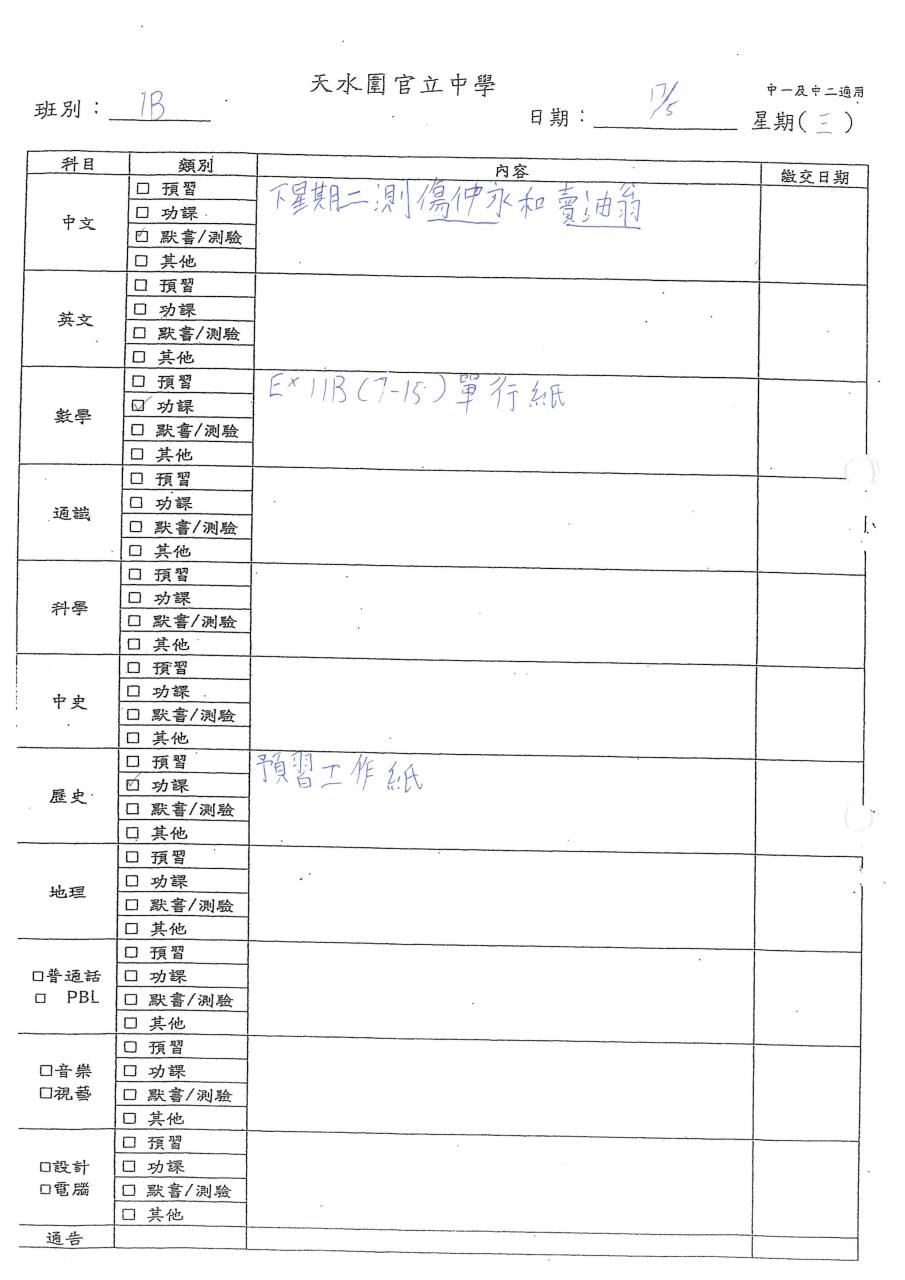 天水圍官立中學
中一及中二適用
班別：1B 日期：17/5 星期(三)
科目 類別 內容 繳交日期
中文
□ 預習
□ 功課
☑ 默書/測驗
□ 其他
下星期二測傷仲永和賣油翁
英文
□ 預習
□ 功課
□ 默書/測驗
□ 其他
數學
□ 預習
☑ 功課
□ 默書/測驗
□ 其他
Ex 11B (7-15) 單行紙
通識
□ 預習
□ 功課
□ 默書/測驗
□ 其他
科學
□ 預習
□ 功課
□ 默書/測驗
□ 其他
中史
□ 預習
□ 功課
□ 默書/測驗
□ 其他
歷史
□ 預習
☑ 功課
□ 默書/測驗
□ 其他
預習工作紙
地理
□ 預習
□ 功課
□ 默書/測驗
□ 其他
□普通話
□ PBL
□ 預習
□ 功課
□ 默書/測驗
□ 其他
□音樂
□視藝
□ 預習
□ 功課
□ 默書/測驗
□ 其他
□設計
□電腦
□ 預習
□ 功課
□ 默書/測驗
□ 其他
通告